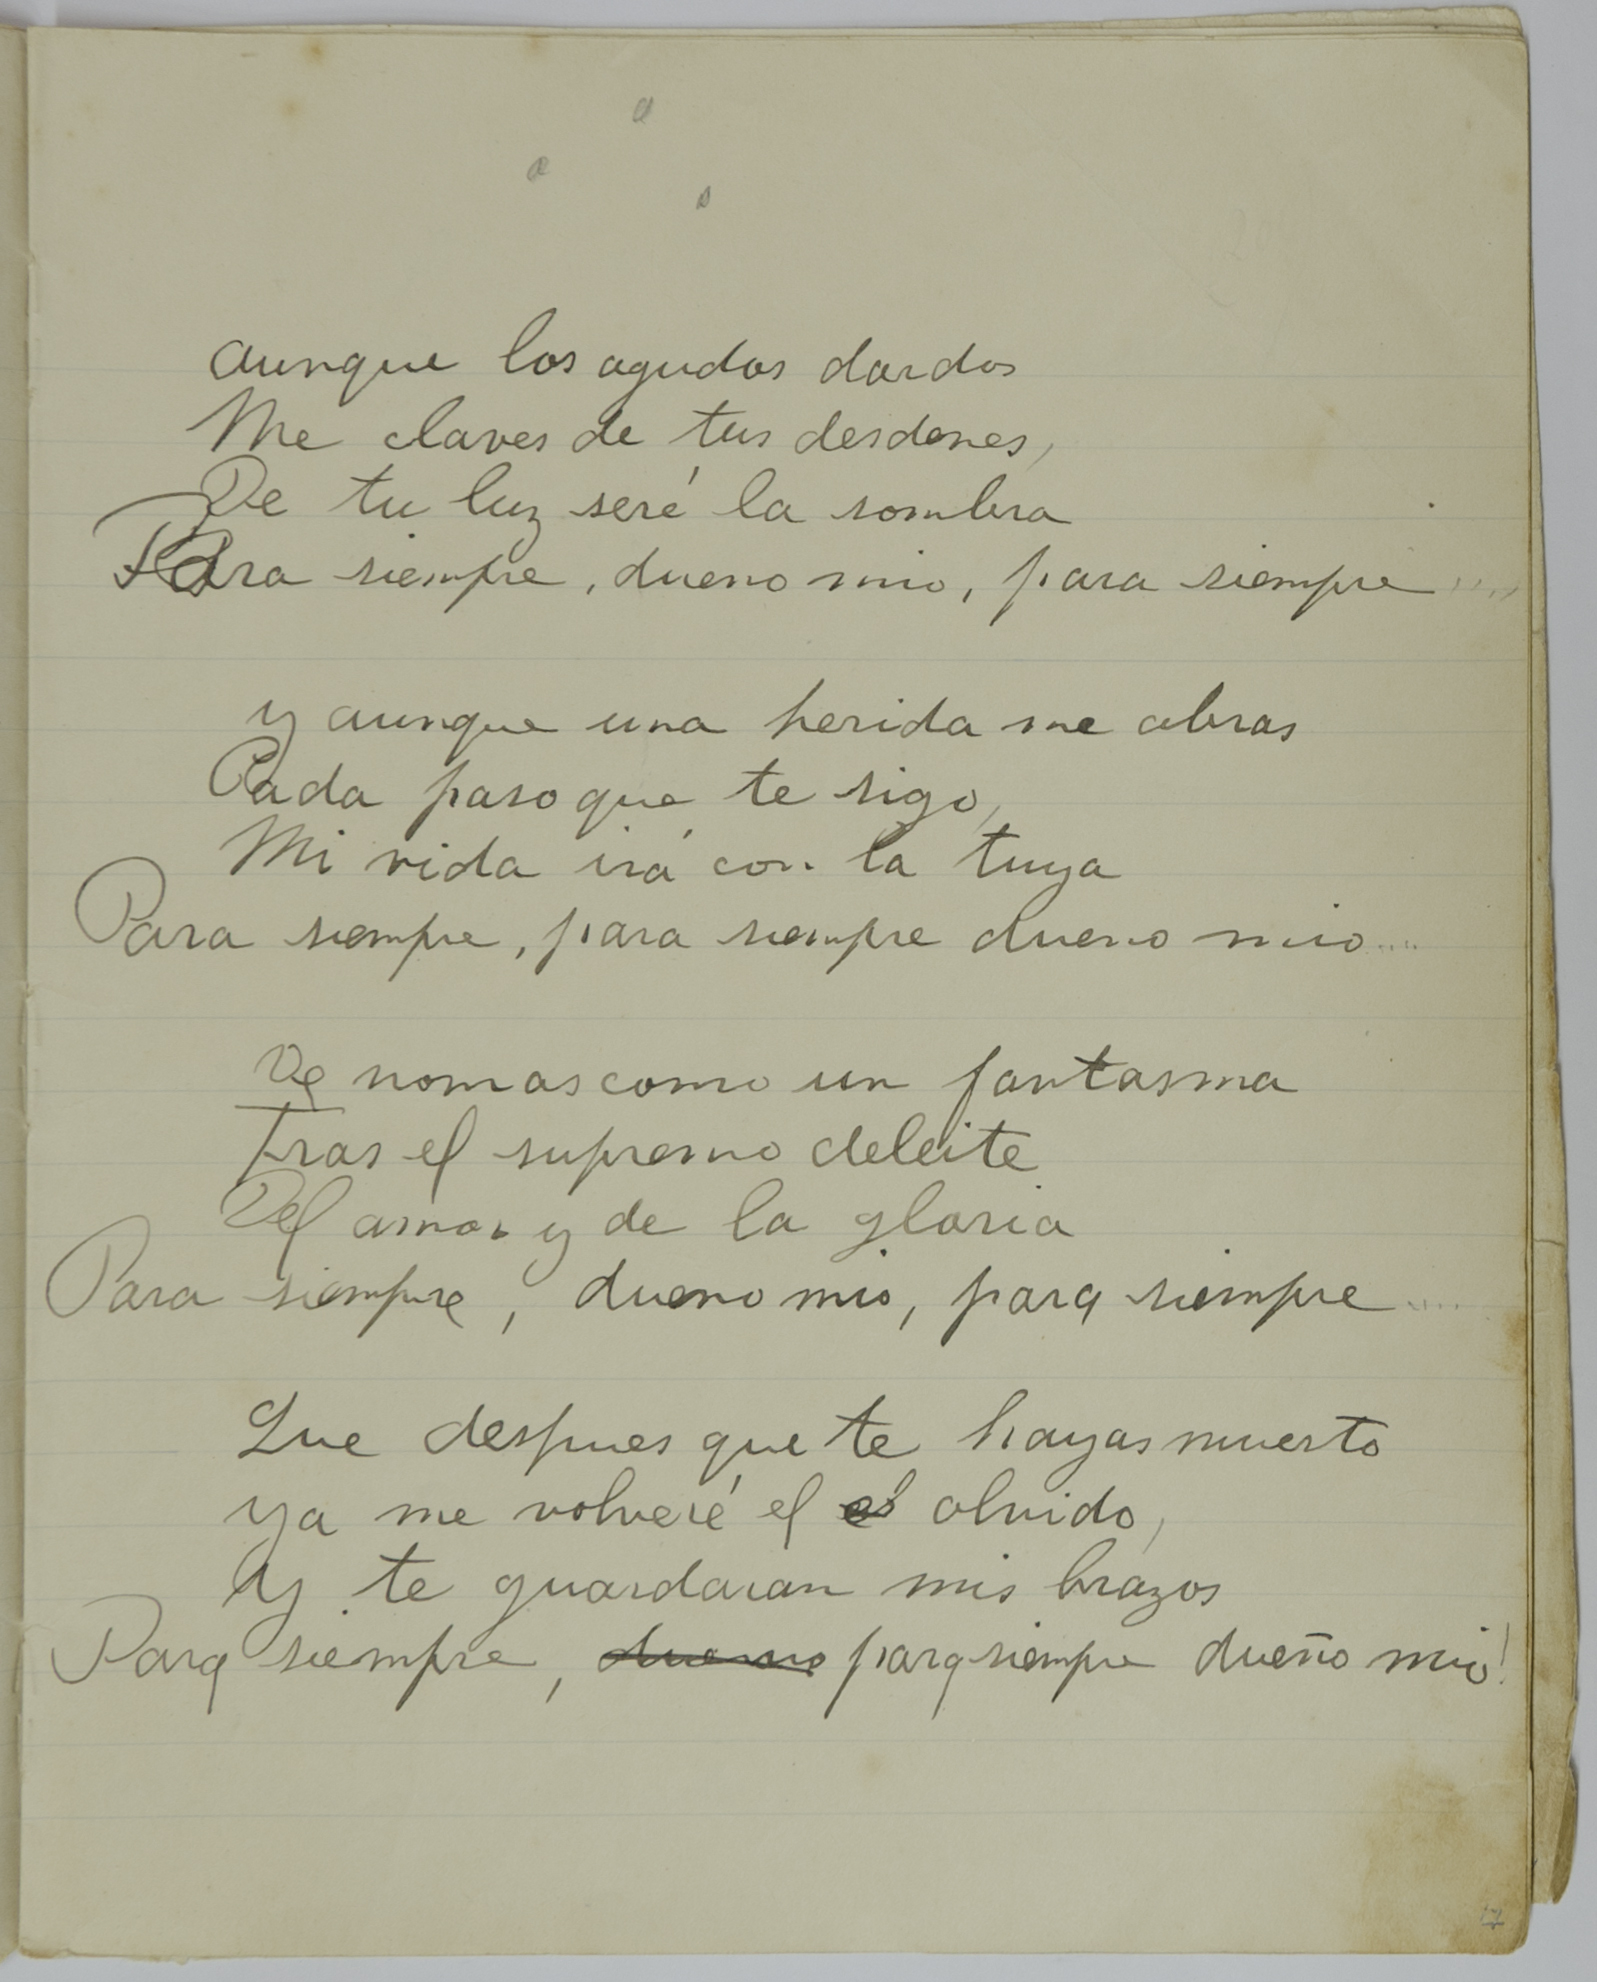 aunque los agudos dardos
Me claves de tus desdenes,
De tu luz seré la sombra
Para siempre, dueno mio, para siempre ....
y aunque una herida me abras
Cada paso que te sigo,
Mi vida irá con la tuya
Para siempre, para siempre dueno mio ....
Ve nomas como un fantasma
Tras el supremo deleite
Del amor y de la gloria
Para siempre, dueno mio, para siempre ....
Que despues que te hayas muerto
ya me volveré el olvido,
y te guardaran mis brazos
Para siempre, dueno para siempre dueño mio!
17